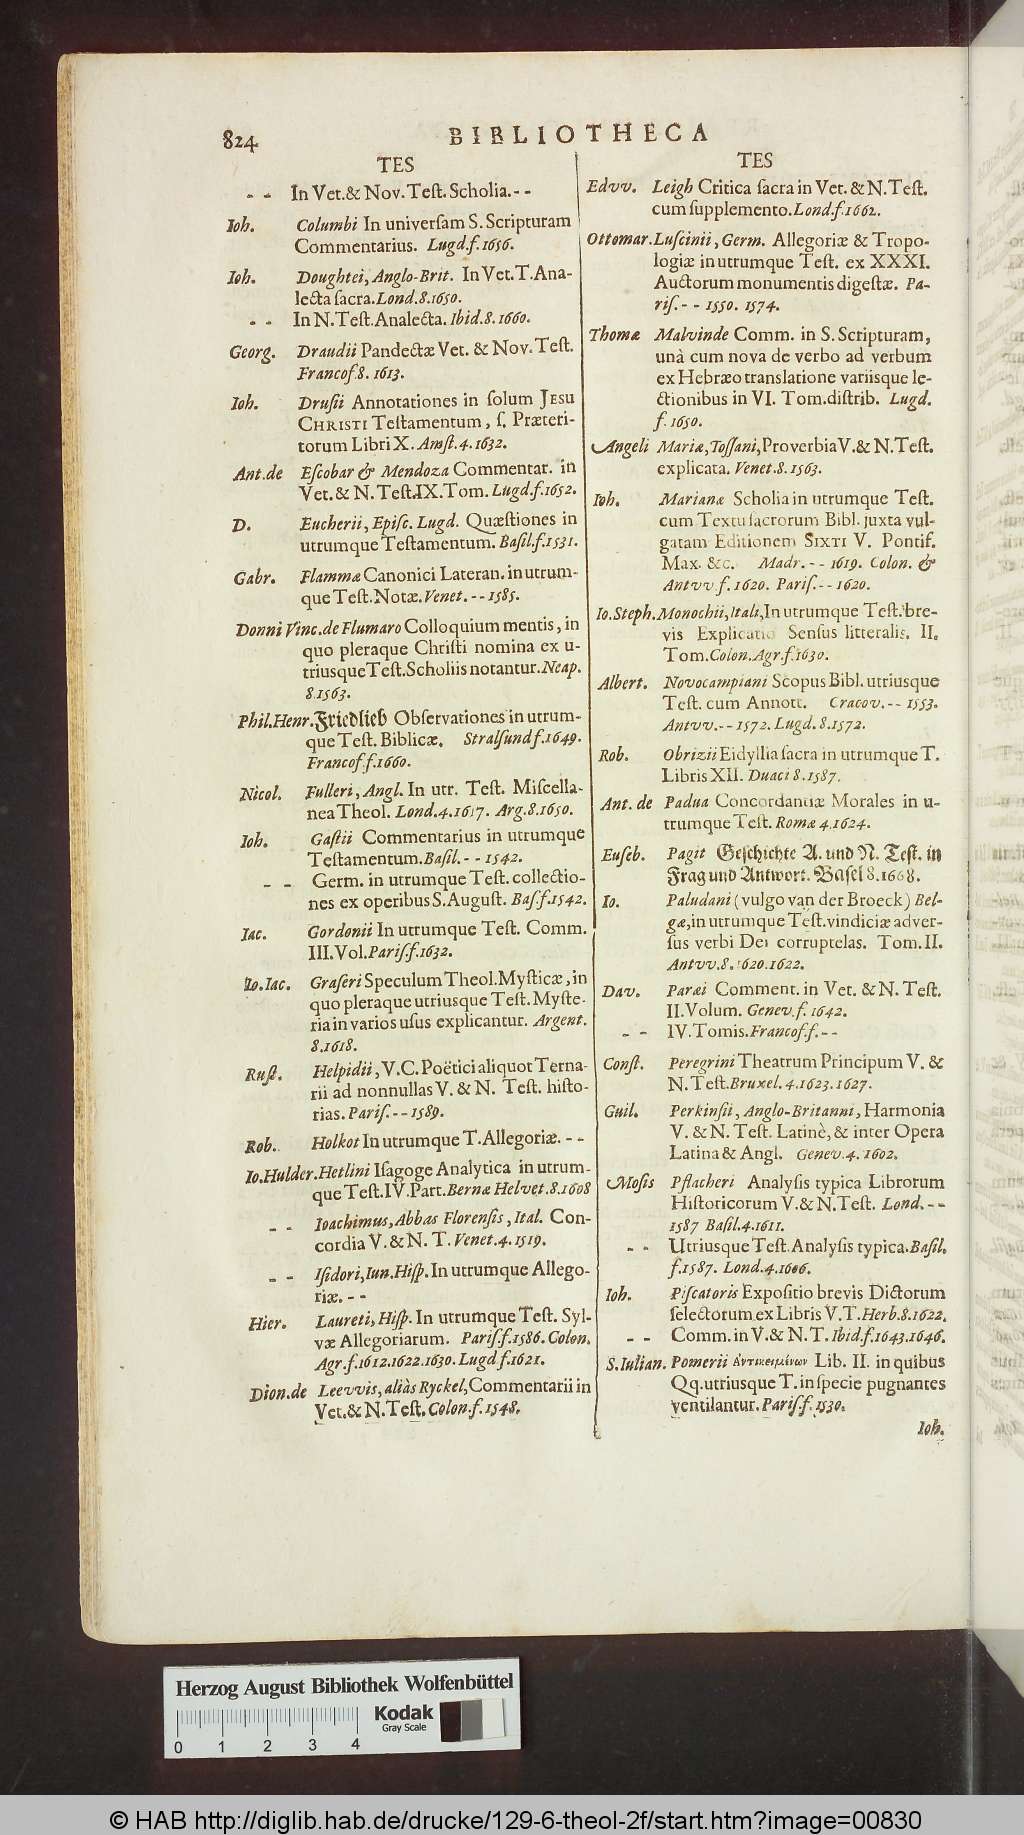 824 BIBLIOTHECA
TES
- - In Vet.& Nov. Teſt. Scholia. - -
Ioh. Columbi In univerſam S. Scripturam
Commentarius. Lugd.f.1656.
Ioh. Doughtei, Anglo-Brit. In Vet. T. Ana-
lecta ſacra. Lond.8.1650.
- - In N. Teſt. Analecta. Ibid.8.1660.
Georg. Draudii Pandectæ Vet. & Nov. Teſt.
Francof.8. 1613.
Ioh. Druſii Annotationes in ſolum JESU
CHRISTI Teſtamentum, ſ. Præteri-
torum Libri X. Amſt.4.1632.
Ant.de Eſcobar & Mendoza Commentar. in
Vet. & N. Teſt.IX.Tom. Lugd.f.1652.
D. Eucherii, Epiſc. Lugd. Quæſtiones in
utrumque Teſtamentum. Baſil.f.1531.
Gabr. Flammæ Canonici Lateran. in utrum-
que Teſt. Notæ. Venet. - - 1585.
Donni Vinc.de Flumaro Colloquium mentis, in
quo pleraque Chriſti nomina ex u-
triusque Teſt. Scholiis notantur. Neap.
8.1563.
Phil.Henr. Friedlieb Obſervationes in utrum-
que Teſt. Biblicæ. Stralſund f.1649.
Francof.f.1660.
Nicol. Fulleri, Angl. In utr. Teſt. Miſcella-
nea Theol. Lond.4.1617. Arg.8.1650.
Ioh. Gaſtii Commentarius in utrumque
Teſtamentum. Baſil. - - 1542.
- - Germ. in utrumque Teſt. collectio-
nes ex operibus S. Auguſt. Baſ.f.1542.
Iac. Gordonii In utrumque Teſt. Comm.
III. Vol. Pariſ.f.1632.
Io.Iac. Graſeri Speculum Theol. Myſticæ, in
quo pleraque utriusque Teſt. Myſte-
ria in varios uſus explicantur. Argent.
8.1618.
Ruſt. Helpidii, V.C. Poëtici aliquot Terna-
rii ad nonnullas V. & N. Teſt. hiſto-
rias. Pariſ. - - 1589.
Rob. Holkot In utrumque T. Allegoriæ. - -
Io.Hulder. Hetlini Iſagoge Analytica in utrum-
que Teſt. IV. Part. Bernæ Helvet.8.1608
- - Ioachimus, Abbas Florenſis, Ital. Con-
cordia V. & N. T. Venet.4.1519.
- - Iſidori, Iun. Hiſp. In utrumque Allego-
riæ. - -
Hier. Laureti, Hiſp. In utrumque Teſt. Syl-
væ Allegoriarum. Pariſ.f.1586. Colon.
Agr.f.1612.1622.1630. Lugd.f.1621.
Dion.de Leevvis, aliàs Ryckel, Commentarii in
Vet. & N. Teſt. Colon.f.1548.
TES
Edvv. Leigh Critica ſacra in Vet. & N. Teſt.
cum ſupplemento. Lond.f.1662.
Ottomar. Luſcinii, Germ. Allegoriæ & Tropo-
logiæ in utrumque Teſt. ex XXXI.
Auctorum monumentis digeſtæ. Pa-
riſ. - - 1550. 1574.
Thomæ Malvindæ Comm. in S. Scripturam,
unà cum nova de verbo ad verbum
ex Hebræo translatione variisque le-
ctionibus in VI. Tom. diſtrib. Lugd.
f.1650.
Angeli Mariæ, Toſſani, Proverbia V. & N. Teſt.
explicata. Venet.8.1563.
Ioh. Marianæ Scholia in utrumque Teſt.
cum Textu ſacrorum Bibl. juxta vul-
gatam Editionem SIXTI V. Pontif.
Max. &c. Madr. - - 1619. Colon. &
Antvv f. 1620. Pariſ. - - 1620.
Io.Steph. Monochii, Itali, In utrumque Teſt. bre-
vis Explicatio Senſus litteralis. II.
Tom. Colon.Agr.f.1630.
Albert. Novocampiani Scopus Bibl. utriusque
Teſt. cum Annott. Cracov. - - 1553.
Antvv. - - 1572. Lugd.8.1572.
Rob. Obrizii Eidyllia ſacra in utrumque T.
Libris XII. Duaci 8.1587.
Ant. de Padua Concordantiæ Morales in u-
trumque Teſt. Romæ 4.1624.
Euſeb. Pagit Geſchichte A. und N. Teſt. in
Frag und Antwort. Baſel 8.1668.
Io. Paludani (vulgo van der Broeck) Bel-
gæ, in utrumque Teſt. vindiciæ adver-
ſus verbi Dei corruptelas. Tom. II.
Antvv.8.1620.1622.
Dav. Paræi Comment. in Vet. & N. Teſt.
II. Volum. Genev.f. 1642.
- - IV. Tomis. Francof.f. - -
Conſt. Peregrini Theatrum Principum V. &
N. Teſt. Bruxel.4.1623.1627.
Guil. Perkinſii, Anglo-Britanni, Harmonia
V. & N. Teſt. Latinè, & inter Opera
Latina & Angl. Genev.4. 1602.
Moſis Pflacheri Analyſis typica Librorum
Hiſtoricorum V. & N. Teſt. Lond. - -
1587 Baſil.4.1611.
- - Utriusque Teſt. Analyſis typica. Baſil.
f.1587. Lond.4.1606.
Ioh. Piſcatoris Expoſitio brevis Dictorum
ſelectorum ex Libris V. T. Herb.8.1622.
- - Comm. in V. & N. T. Ibid.f.1643.1646.
S.Iulian. Pomerii Ἀντικειμένων Lib. II. in quibus
Qq. utriusque T. in ſpecie pugnantes
ventilantur. Pariſ.f.1530.
Ioh.
Herzog August Bibliothek Wolfenbüttel
Kodak
Gray Scale
0 1 2 3 4
© HAB http://diglib.hab.de/drucke/129-6-theol-2f/start.htm?image=00830